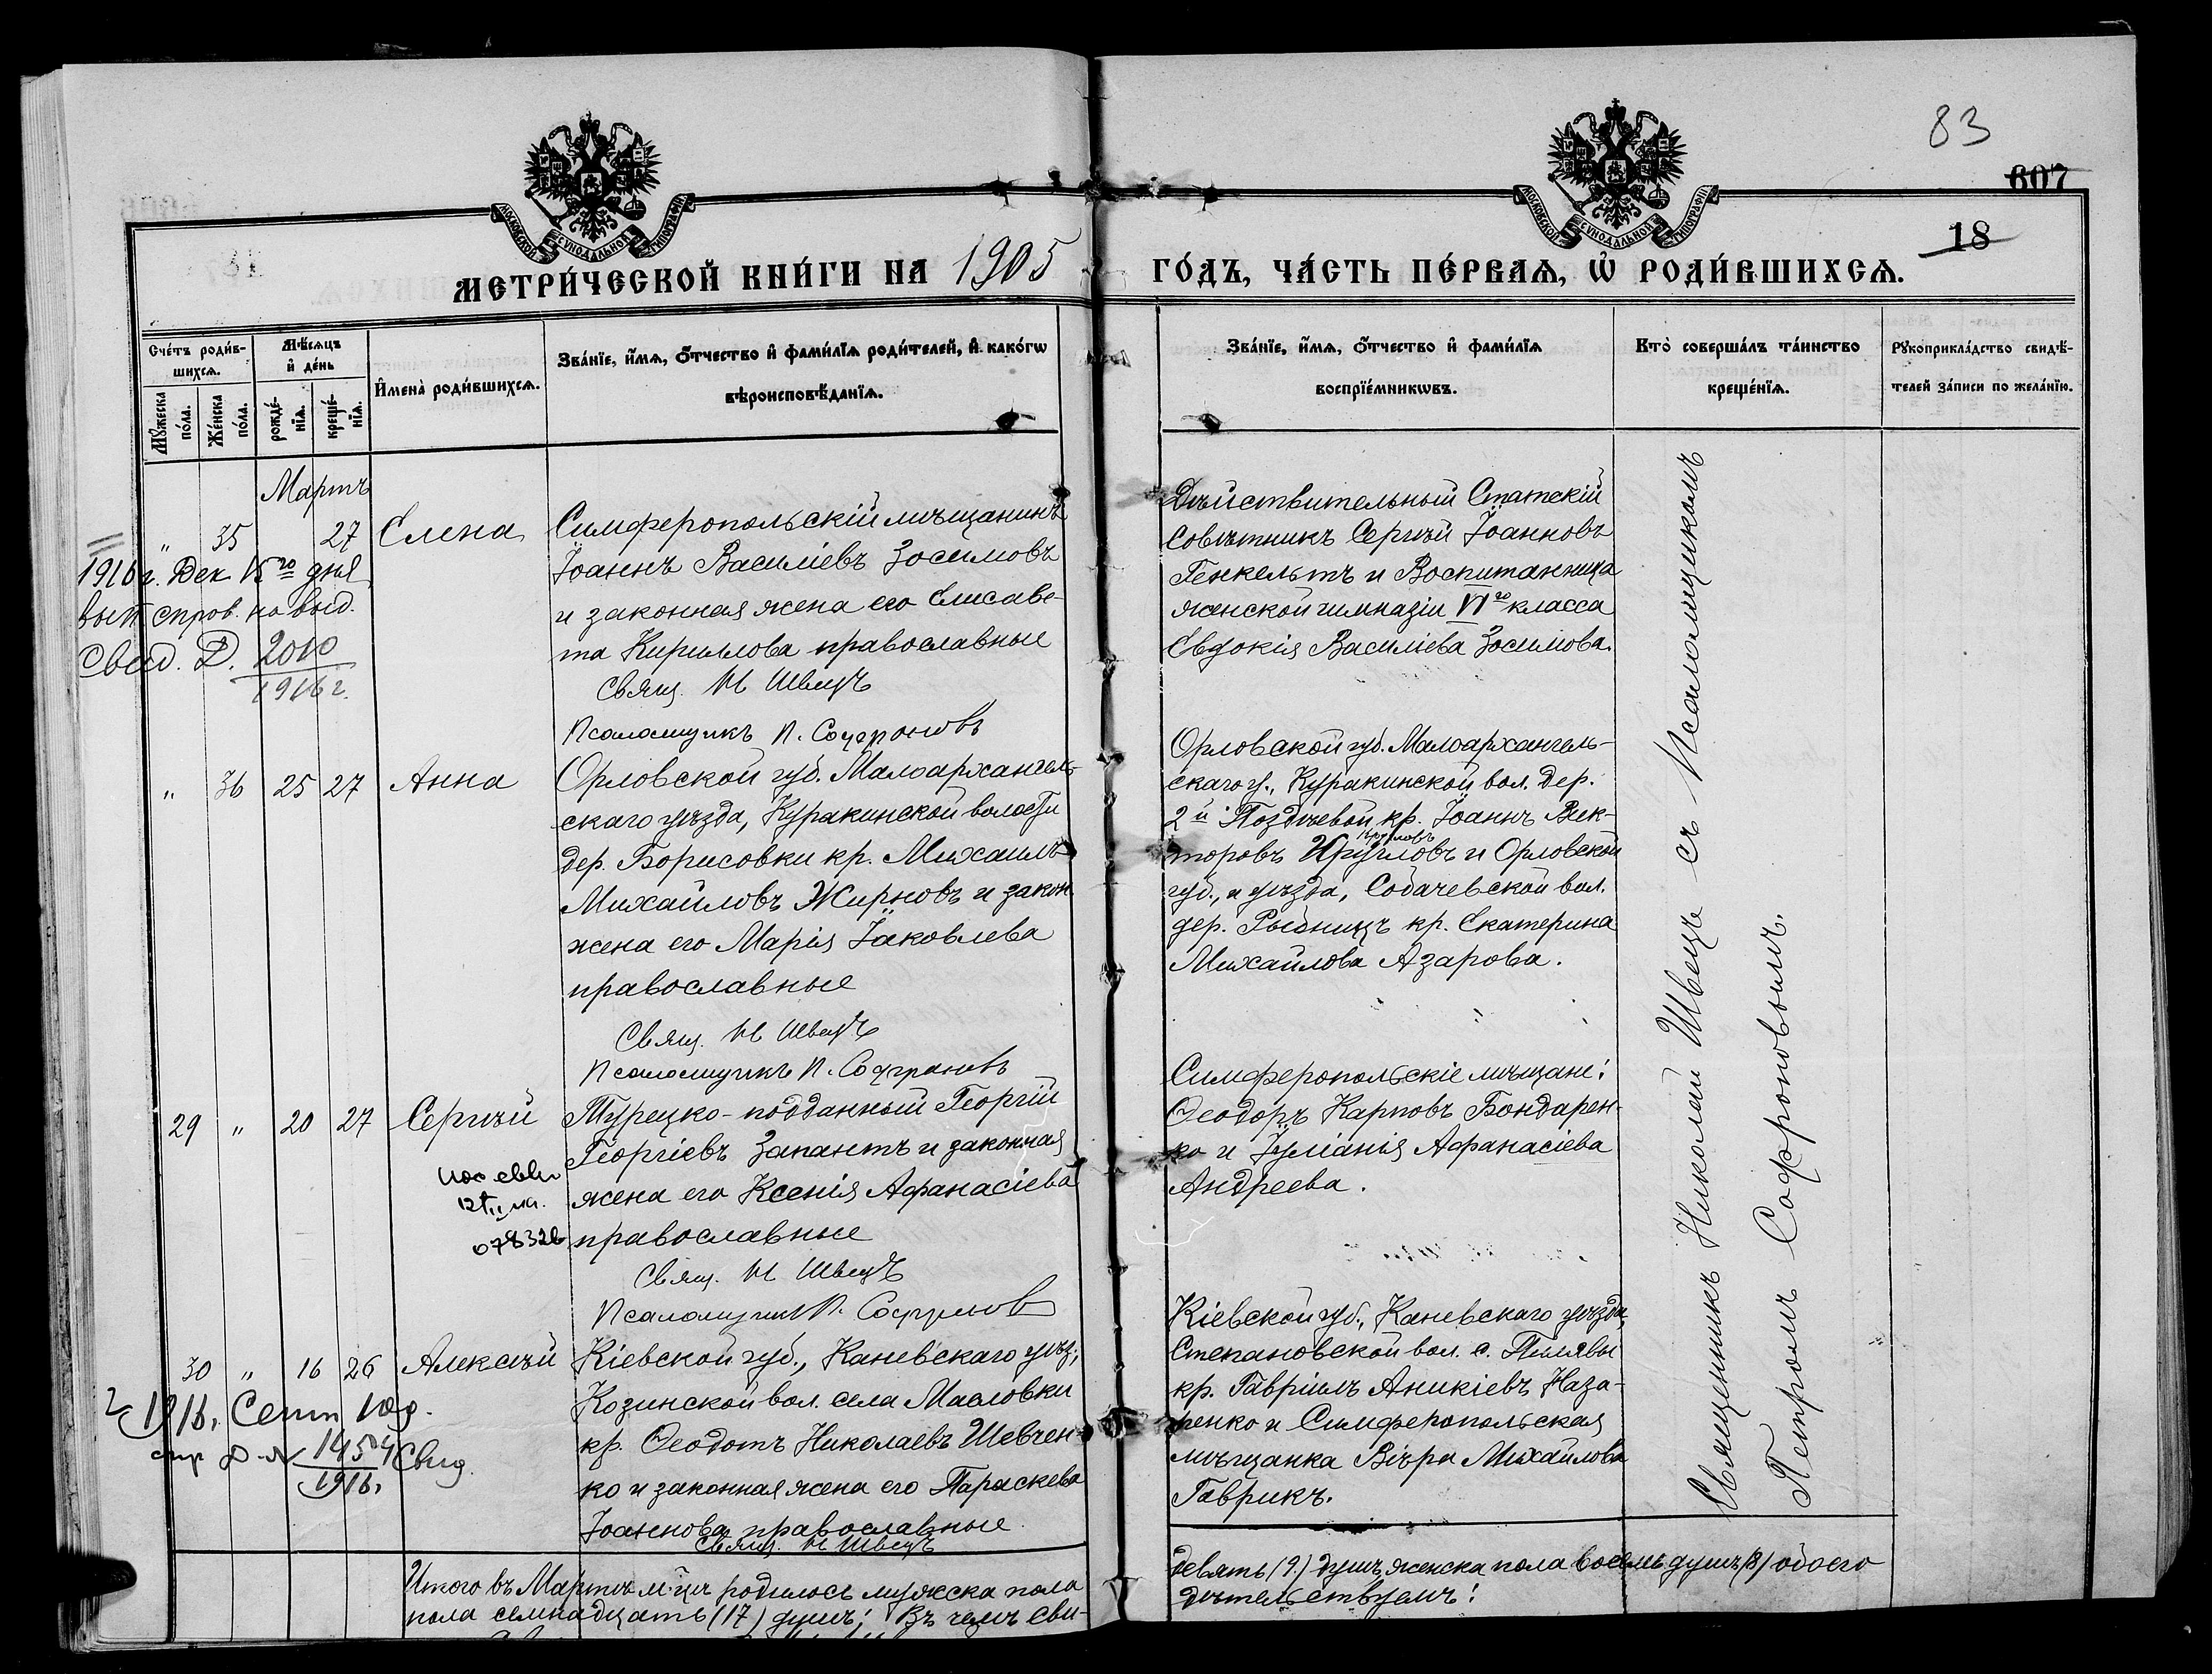 83
607
18
МОСКОВСКОЙ СѴНОДАЛЬНОЙ ТИПОГРАФІИ
МОСКОВСКОЙ СѴНОДАЛЬНОЙ ТИПОГРАФІИ
МЕТРИ́ЧЕСКОЙ КНИ́ГИ НА 1905 ГО́ДЪ, ЧА́СТЬ ПЕ́РВАѦ, Ѡ҆ РОДИ́ВШИХСѦ.
Сче́тъ роди́в-
шихсѧ.
Мꙋ́жеска по́ла.
Же́нска по́ла.
Мѣ́сѧцъ
и҆ де́нь
рожде́-
нїѧ.
креще́-
нїѧ.
И҆мена̀ роди́вшихсѧ.
Зва́нїе, и҆́мѧ, ѻ҆́тчество и҆ фами́лїѧ роди́телей, и҆ како́гѡ
вѣроисповѣ́данїѧ.
Зва́нїе, и҆́мѧ, ѻ҆́тчество и҆ фами́лїѧ
воспрїе́мникѡвъ.
Кто̀ соверша́лъ та́инство
креще́нїѧ.
Рꙋкоприкла́дство свидѣ́-
телей за́писи по жела́нїю.
Мартъ
" 35 27 Елена
Симферопольскій мѣщанинъ
Іоаннъ Василіевъ Зосимовъ
и законная жена его Елисаве-
та Кириллова православные
Свящ. Н Швецъ
Псаломщикъ П. Софроновъ
1916 г. Дек 15 го дня
выд.
Свид. 2010
1916 г.
Дѣйствительный Статскій
Совѣтникъ Сергѣй Іоанновъ
Генкельтъ и Воспитанница
женской гимназіи VI го класса
Евдокія Василіева Зосимова.
" 36 25 27 Анна
Орловской губ. Малоархангель-
скаго уѣзда, Куракинской волости
дер. Борисовки кр. Михаилъ
Михайловъ Жирновъ и закон
жена его Марія Іаковлева
православные
Свящ. Н Швецъ
Псаломщикъ П. Софроновъ
Орловской губ. Малоархангель-
скаго у., Куракинской вол. дер.
2 й Поздѣевой кр. Іоаннъ Век-
Кругловъ
торовъ и Орловской
губ., и уѣзда, Собачевской вол.
дер. Рыбницъ кр. Екатерина
Михайлова Азарова.
29 " 20 27 Сергѣй
Турецко-подданный Георгій
Георгіевъ Запантъ и законная
жена его Ксенія Афанасіева
православные
Свящ. Н Швецъ
Псаломщикъ П. Софронов
078326
Симферопольскіе мѣщане:
Ѳеодоръ Карповъ Бондарен-
ко и Іуліанія Афанасіева
Андреева.
30 " 16 26 Алексѣй
Кіевской губ., Каневскаго уѣз;
Козинской вол. села Масловки
кр. Ѳеодотъ Николаевъ Шевчен-
ко и законная жена его Параскева
Іоаннова православные
Свящ. Н Швецъ
1916, Сент
1454 Свид.
1916,
Кіевской губ., Каневскаго уѣзда,
Степановской вол. с. Пилявы
кр. Гавріилъ Аникіевъ Наза-
ренко и Симферопольская
мѣщанка Вѣра Михайлова
Гаврикъ.
Священникъ Николай Швецъ съ Псаломщикомъ
Петромъ Софроновымъ.
Итого въ Мартѣ м-цѣ родилось мужска пола девять (9) душъ, женска пола восемь душъ (8) обоего
пола семнадцать (17) душъ; Въ чемъ сви-дѣтельствуемъ: